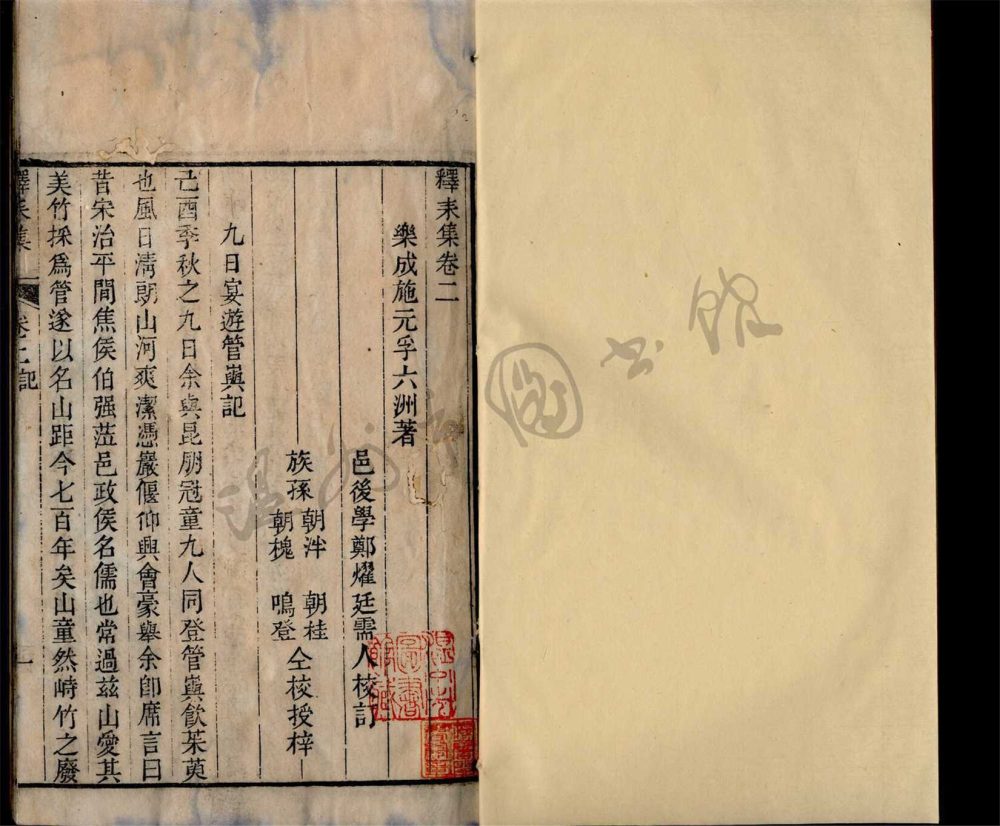 釋耒集卷二
樂成施元孚六洲著
邑後學鄭燿廷需人校訂
族孫 朝泮 朝桂 朝槐 鳴登 仝校授梓
九日宴遊管嶴記
己酉季秋之九日余與昆朋冠童九人同登管嶴飲茱萸
也風日淸朗山河爽潔憑巖偃仰興會豪舉余卽席言曰
昔宋治平間焦侯伯强蒞邑政侯名儒也常過茲山愛其
美竹採爲管遂以名山距今七百年矣山童然峙竹之廢
釋耒集
卷二記
一
溫州市圖書館